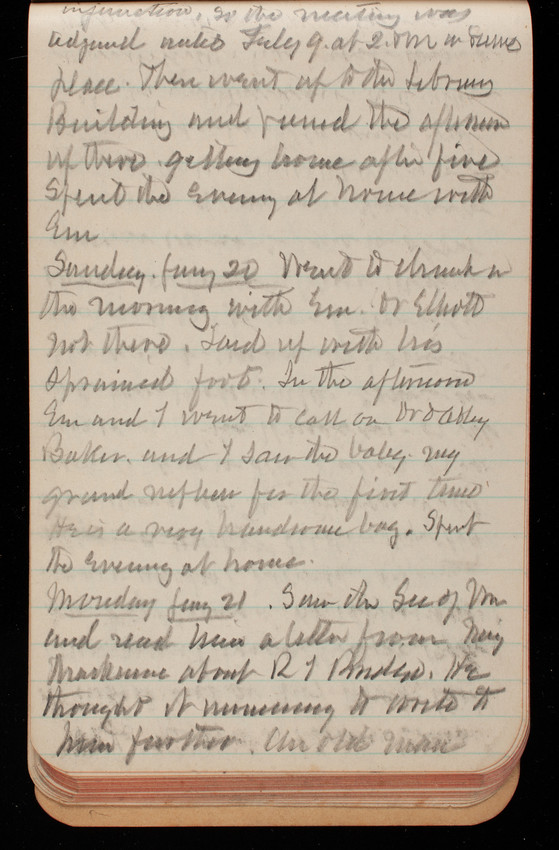 injunction, so the meeting was
adjourned until July 9. at 2. PM in same
place. Then went up to the Library
Building and passed the afternoon
up there getting home after five
Spent the evening at home with
Em
Sunday Jany 20 Went to church in
the morning with Em. Dr Elliott
not there. Laid up with his
sprained foot. In the afternoon
Em and I went to call on Dr &
Baker. and I saw the baby my
grand nephew for the first time
He is a very handsome boy. Spent
the evening at home.
Monday Jany 21. Saw the Sec of War
and read him a letter from
about R I Bridge. He
thought it unnecessary to write to
him further. An old man